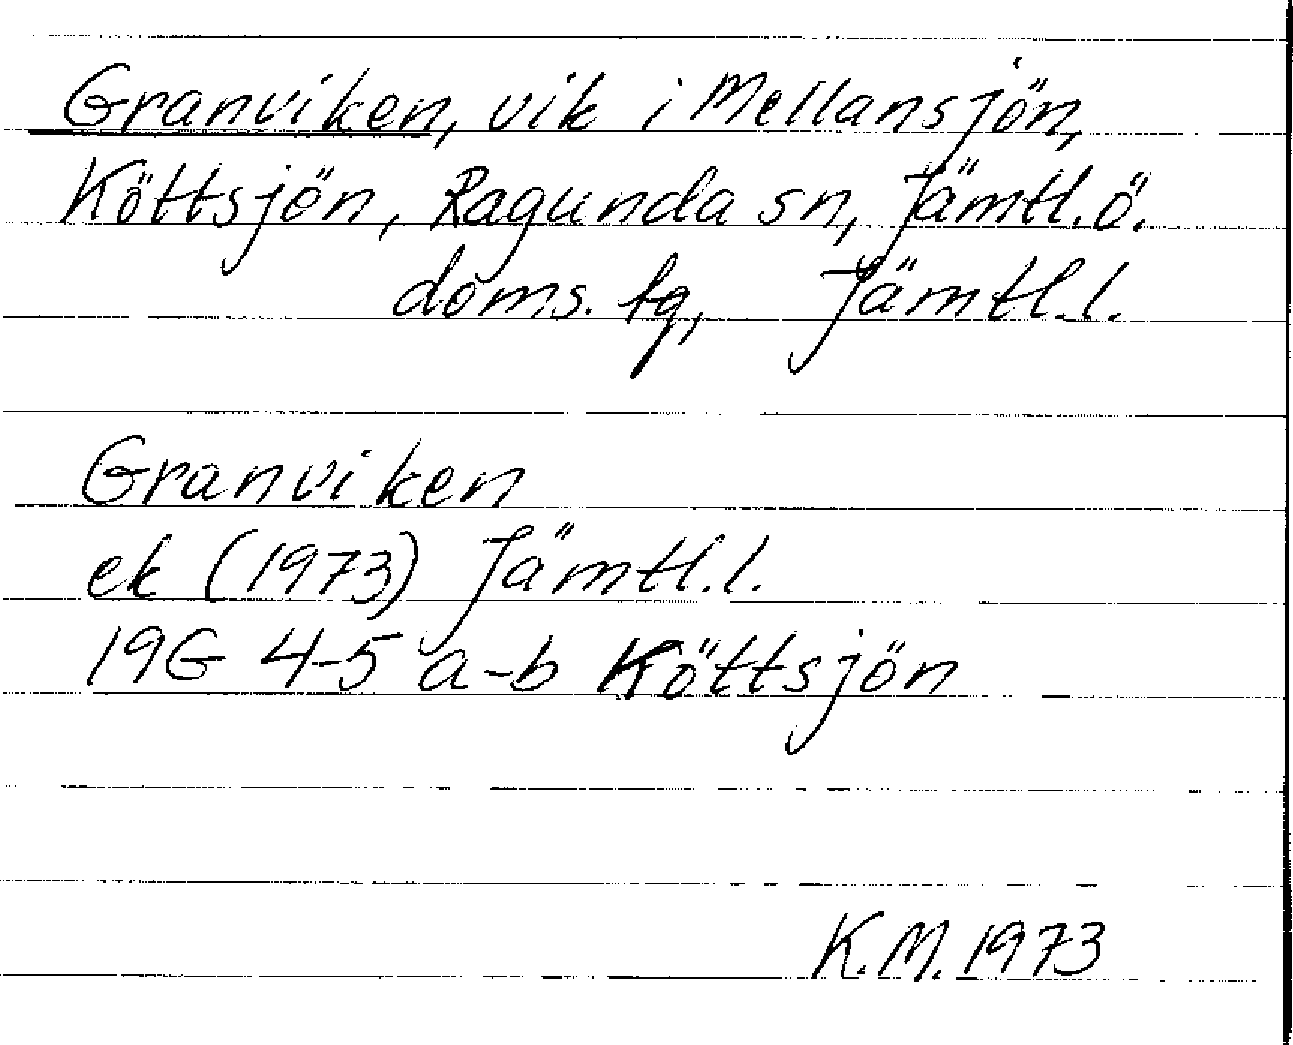 Granviken, vik i Mellansjön,
Köttsjön, Ragunda sn, Jämtl. ö.
doms. tg, Jämtl. l.
Granviken
ek (1973) Jämtl. l.
19G 4-5 a-b Köttsjön
K.M. 1973